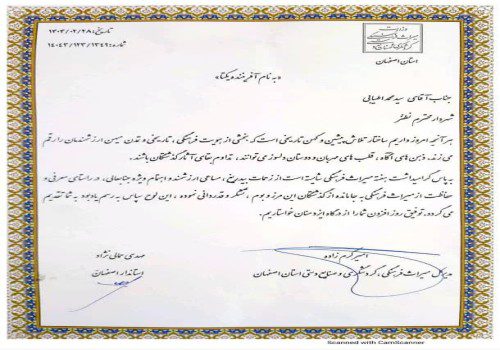 تاریخ: ۱۴۰۴/۰۲/۲۸
شماره: ۱۴۰۴۲/۱۲۳/۱۳۴۹
استان اصفهان
«به نام آفریننده یکتا»
جناب آقای سید محمد اطیابی
شهردار محترم نطنز
هر آنچه امروز داریم ساختار تلاش پیشین و کهن تاریخی است که بخشی از هویت فرهنگی، تاریخی و تمدن میهن ارزشمندمان را رقم
می زند. ذهن های آگاه، قلب های مهربان و دوستان دلسوز می توانند، تداوم بقای آثار گذشتگان باشند.
به پاس گرامیداشت هفته میراث فرهنگی شایسته است از زحمات بیدریغ، مساعی ارزشمند و اهتمام ویژه جنابعالی، در راستای معرفی و
حفاظت از میراث فرهنگی به جا مانده از گذشتگان این مرز و بوم، تشکر و قدردانی نموده، و این لوح سپاس به رسم یادبود به شما تقدیم
می گردد. توفیق روز افزون شما را از درگاه ایزد منان خواستاریم.
امیر کرم زاده
مدیرکل میراث فرهنگی، گردشگری و صنایع دستی استان اصفهان
مهدی جمالی نژاد
استاندار اصفهان
Scanned with CamScanner